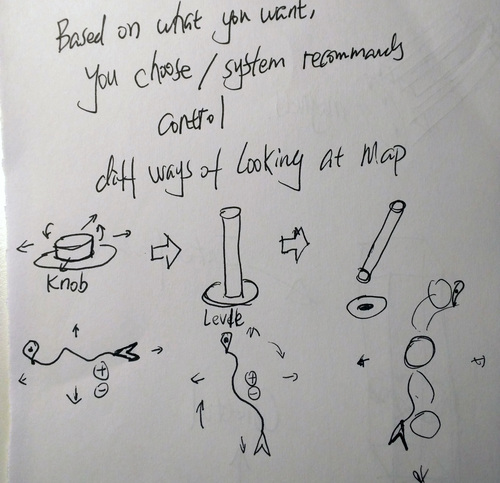 Based on what you want,
you choose / system recommands
control
diff ways of Looking at Map
Knob
Levele
+
-
+
-